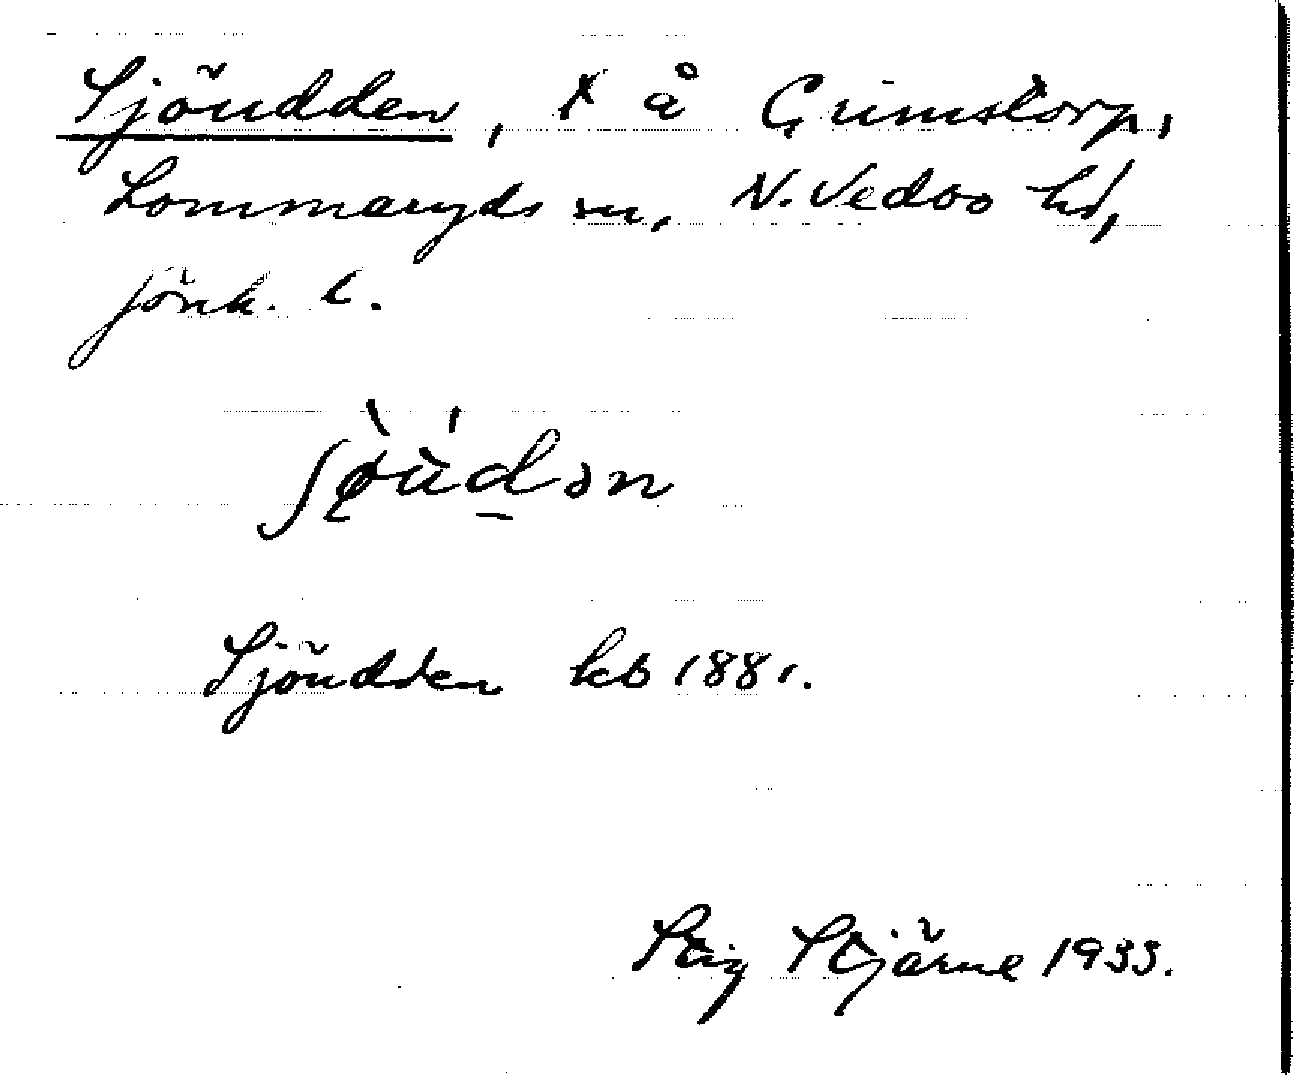 Sjöudden, x å Grimstorp,
Lommaryds sn, N. Vedbo hd,
Jönk. l.
Sjöudden kb 1881.
Stig Stjärne 1933.